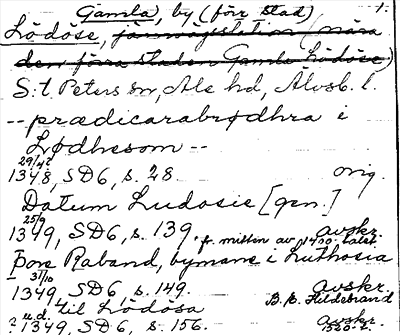 Gamla), by (förr stad) 1.
Lödöse, järnvägsstation (nära
den förra staden Gamla Lödöse)
S:t Peters sn, Ale hd, Älvsb. l.
-- prædicarabrødhra i
Lødhesom --
29/4
1348, SD6, s. 28. orig.
Datum Ludosie [gen.]
25/9
1349, SD6, s. 139. avskr.
fr. mitten av 1400-talet.
Þore Raband, bymane i Luthosia
31/10
1349, SD6, s. 149. Avskr.
B. E. Hildebrand
til Lödösa
u.d.
?1349, SD6, s. 156. Avskr.